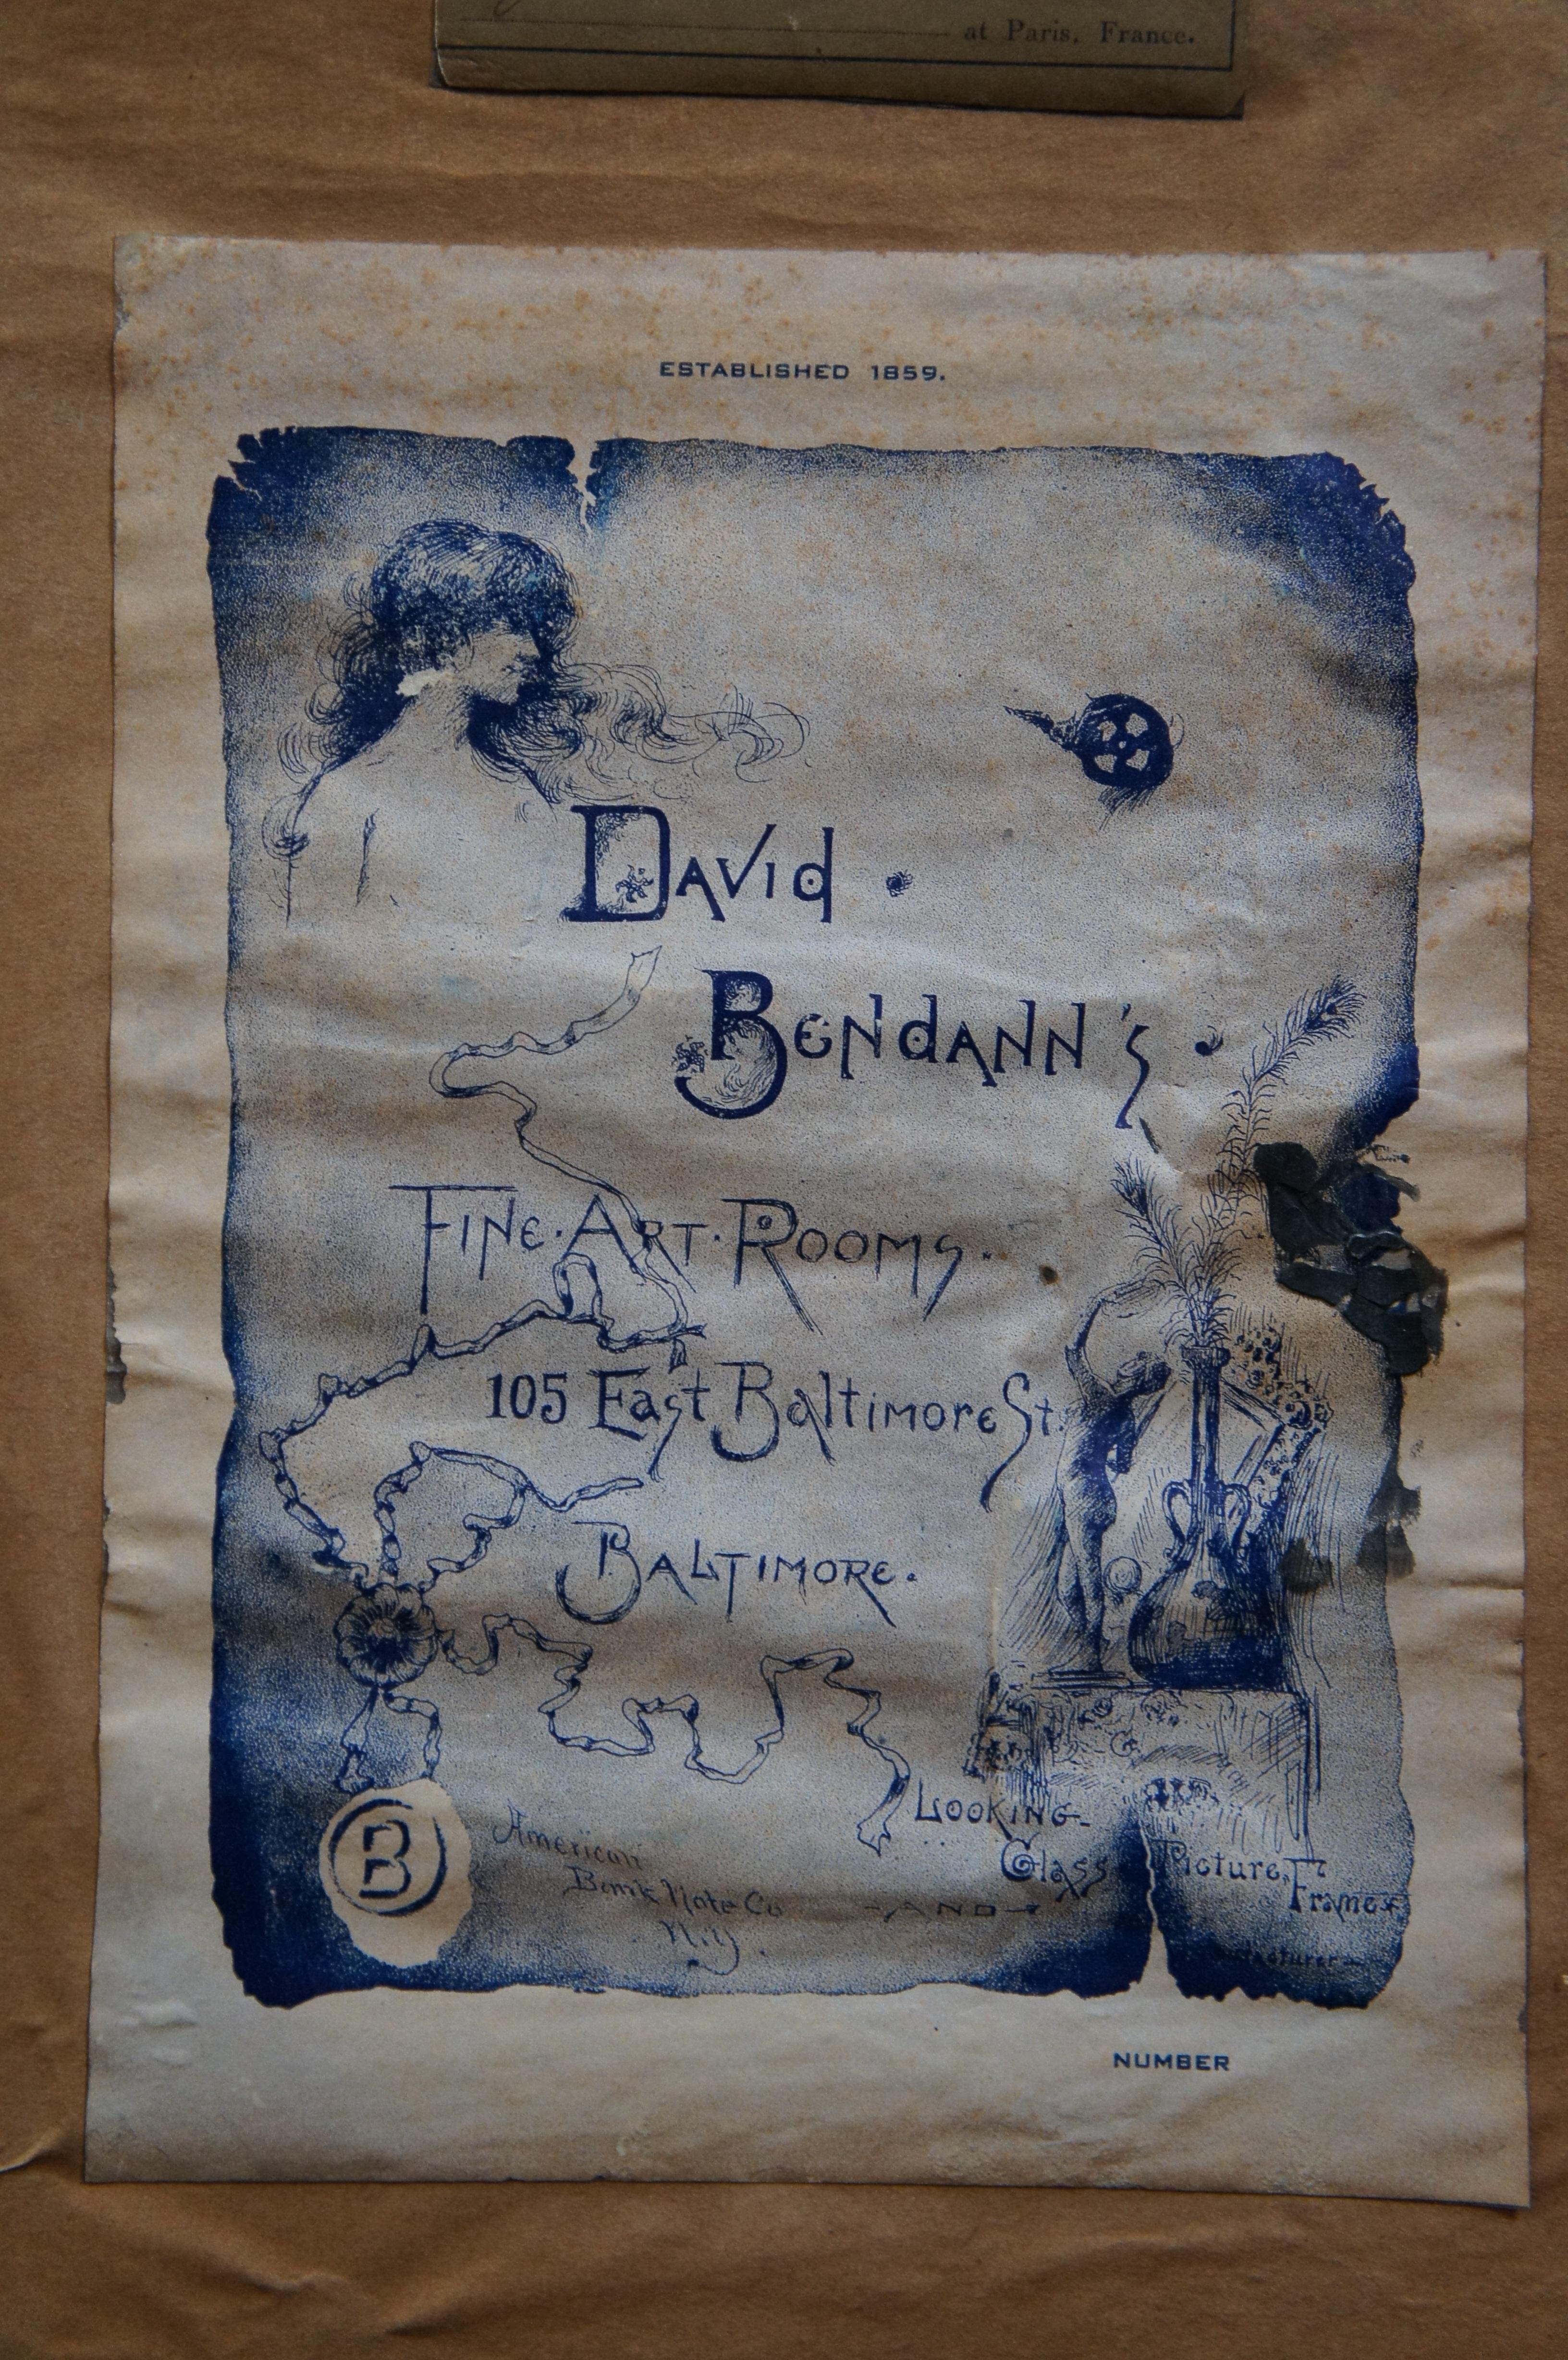 at Paris, France.
ESTABLISHED 1859.
DAVID
BENDANN'S
FINE·ART·ROOMS.
105 East Baltimore St.
BALTIMORE.
LOOKING-
Glass
Picture, Frames
-AND-
B
American
Bank Note Co
N.Y.
NUMBER